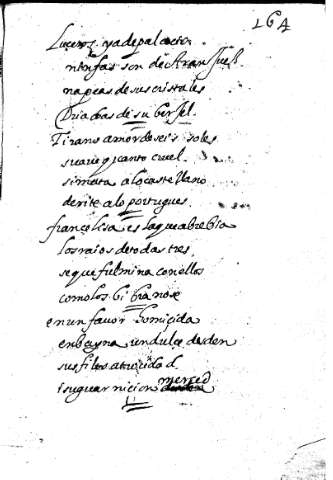 164
Luceros ya de palacio
ninfas son de Aranjuel
napeas de sus cristales
Driadas de su bergel
Tirano amor de seis soles
suave quanto cruel
si mata a lo castellano
derite a lo portugues
francelisa es la que abrebia
los raios de todas tres
se que fulmina con ellos
como los bibra no se
en un favor homicida
enbayna un dulce desden
sus filos atrocidad
i su guarnicion merced